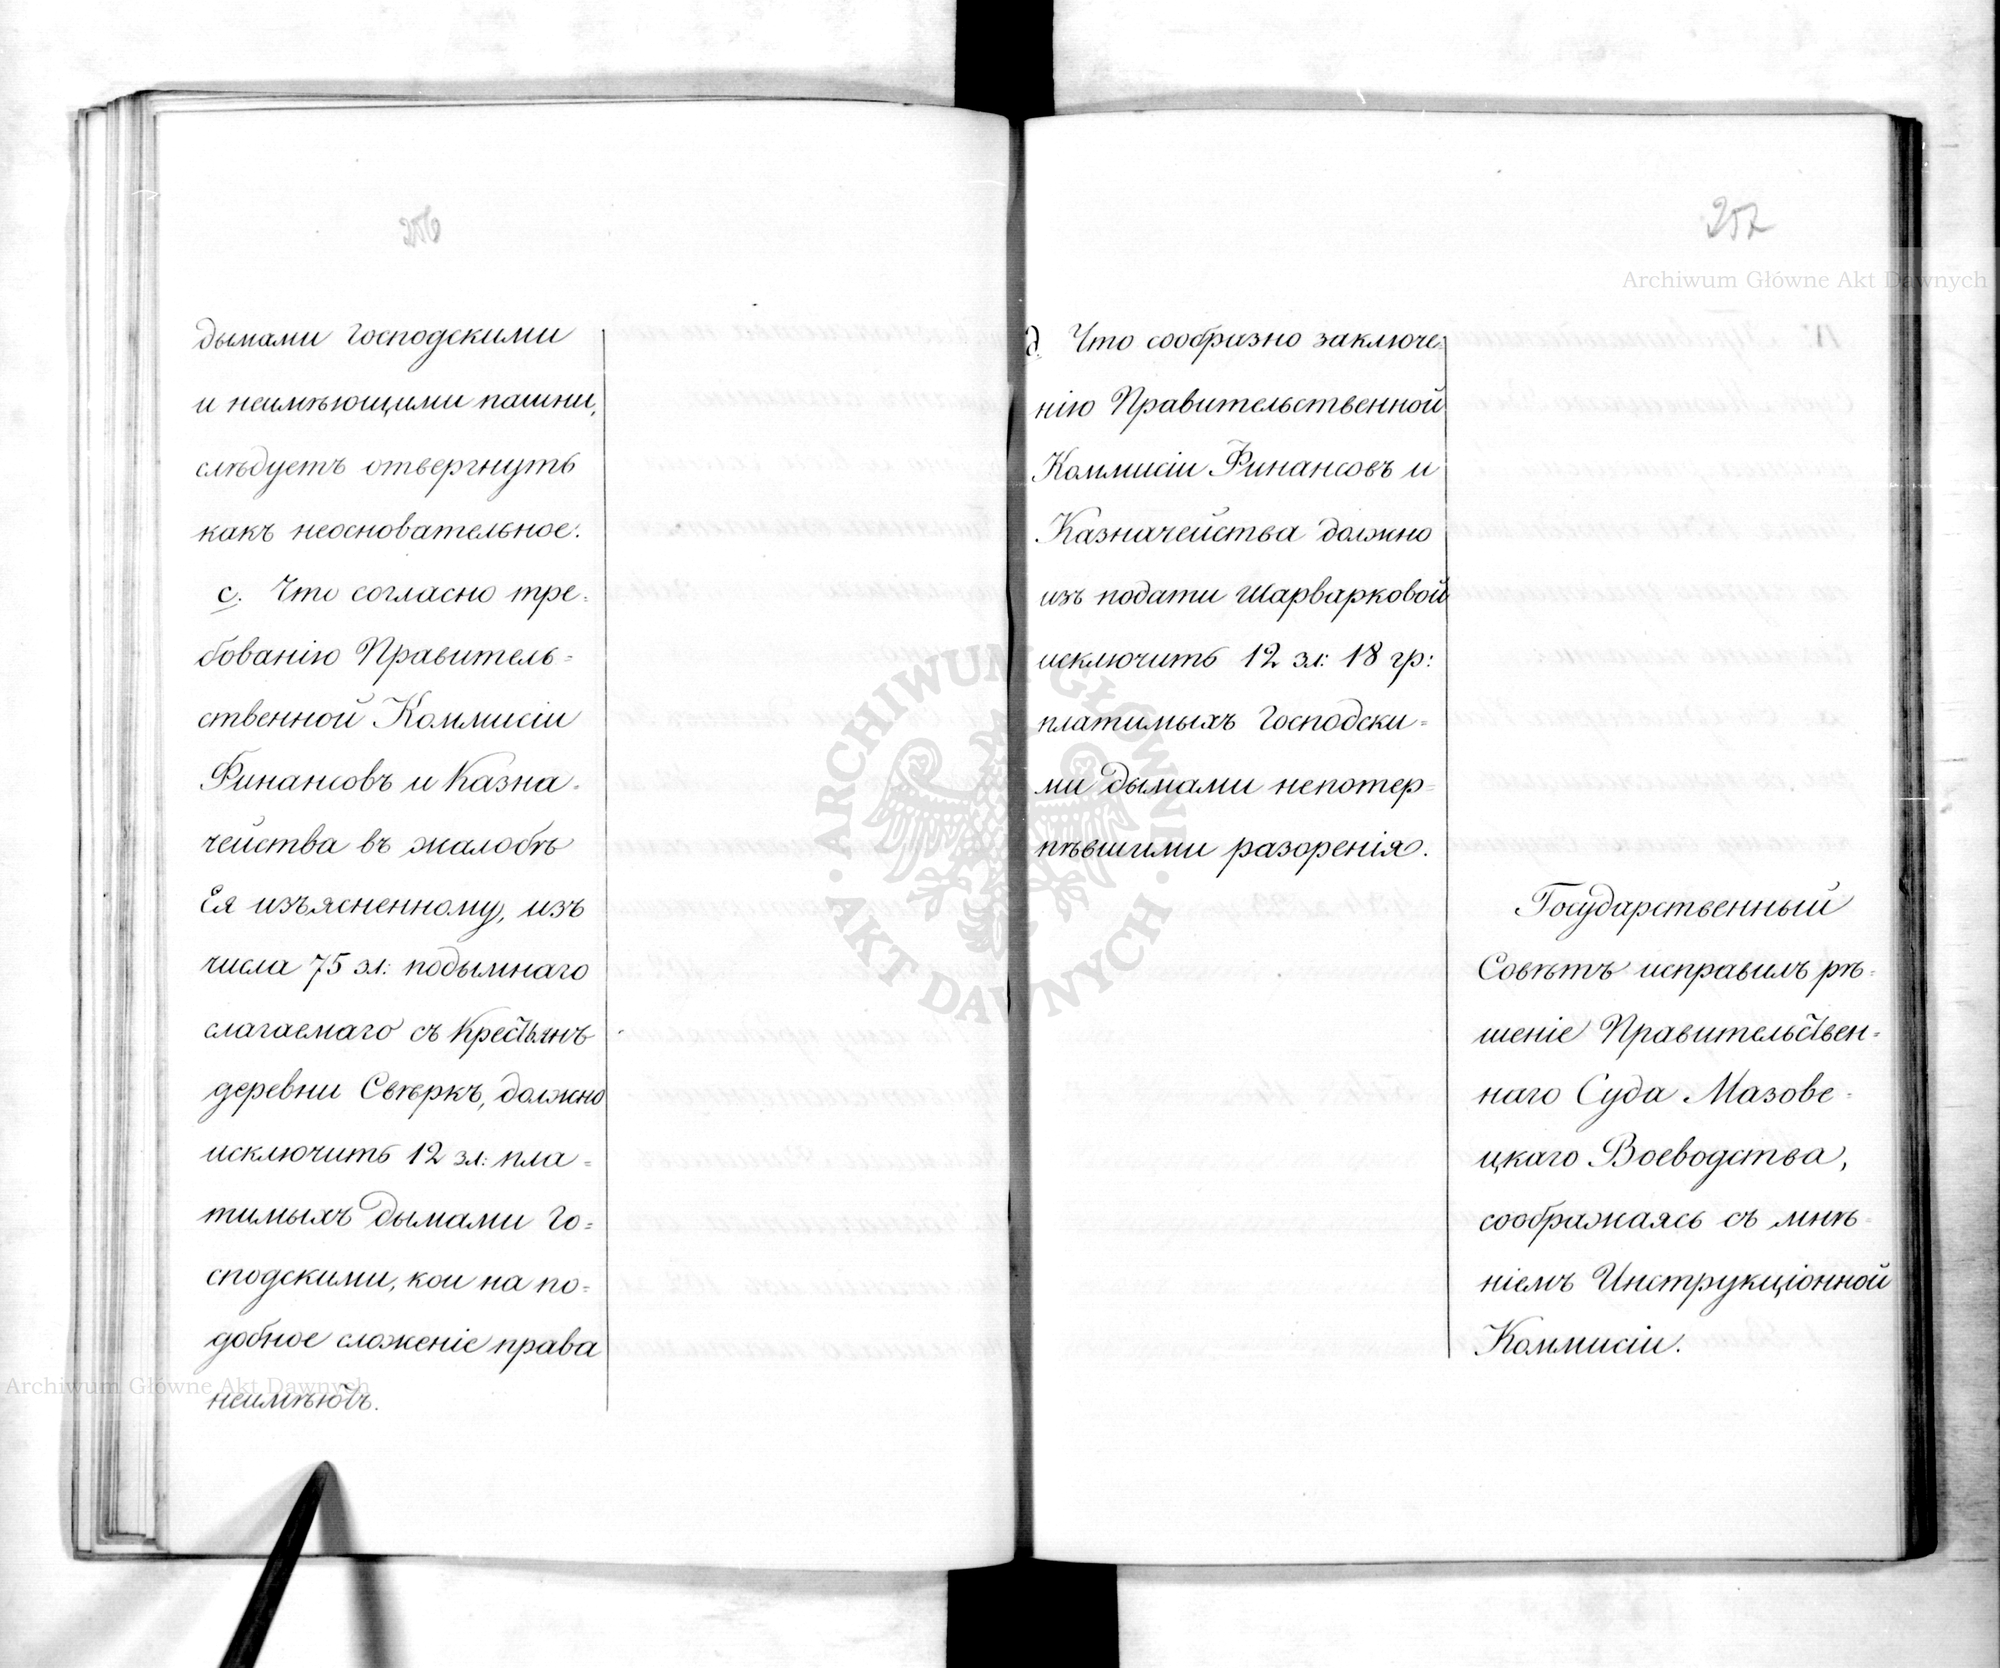 256
дымами Господскими
и неимѣющими пашни,
слѣдуетъ отвергнуть
какъ неосновательное.
с. Что согласно тре-
бованію Правитель-
ственной Коммисіи
Финансовъ и Казна-
чейства въ жалобѣ
Ея изъясненному, изъ
числа 75 зл: подымнаго
слагаемаго съ Крестьянъ
деревни Свѣркъ, должно
исключить 12 зл: пла-
тимыхъ дымами Го-
сподскими, кои на по-
добное сложеніе права
неимѣютъ.
257
д. Что сообразно заключе-
нію Правительственной
Коммисіи Финансовъ и
Казначейства должно
изъ подати Шарварковой
исключить 12 зл: 18 гр:
платимыхъ Господски-
ми дымами непотер-
пѣвшими разоренія.
Государственный
Совѣтъ исправилъ рѣ-
шеніе Правительствен-
наго Суда Мазове-
цкаго Воеводства,
соображаясь съ мнѣ-
ніемъ Инструкціонной
Коммисіи.
Archiwum Główne Akt Dawnych
ARCHIWUM GŁÓWNE AKT DAWNYCH
Archiwum Główne Akt Dawnych